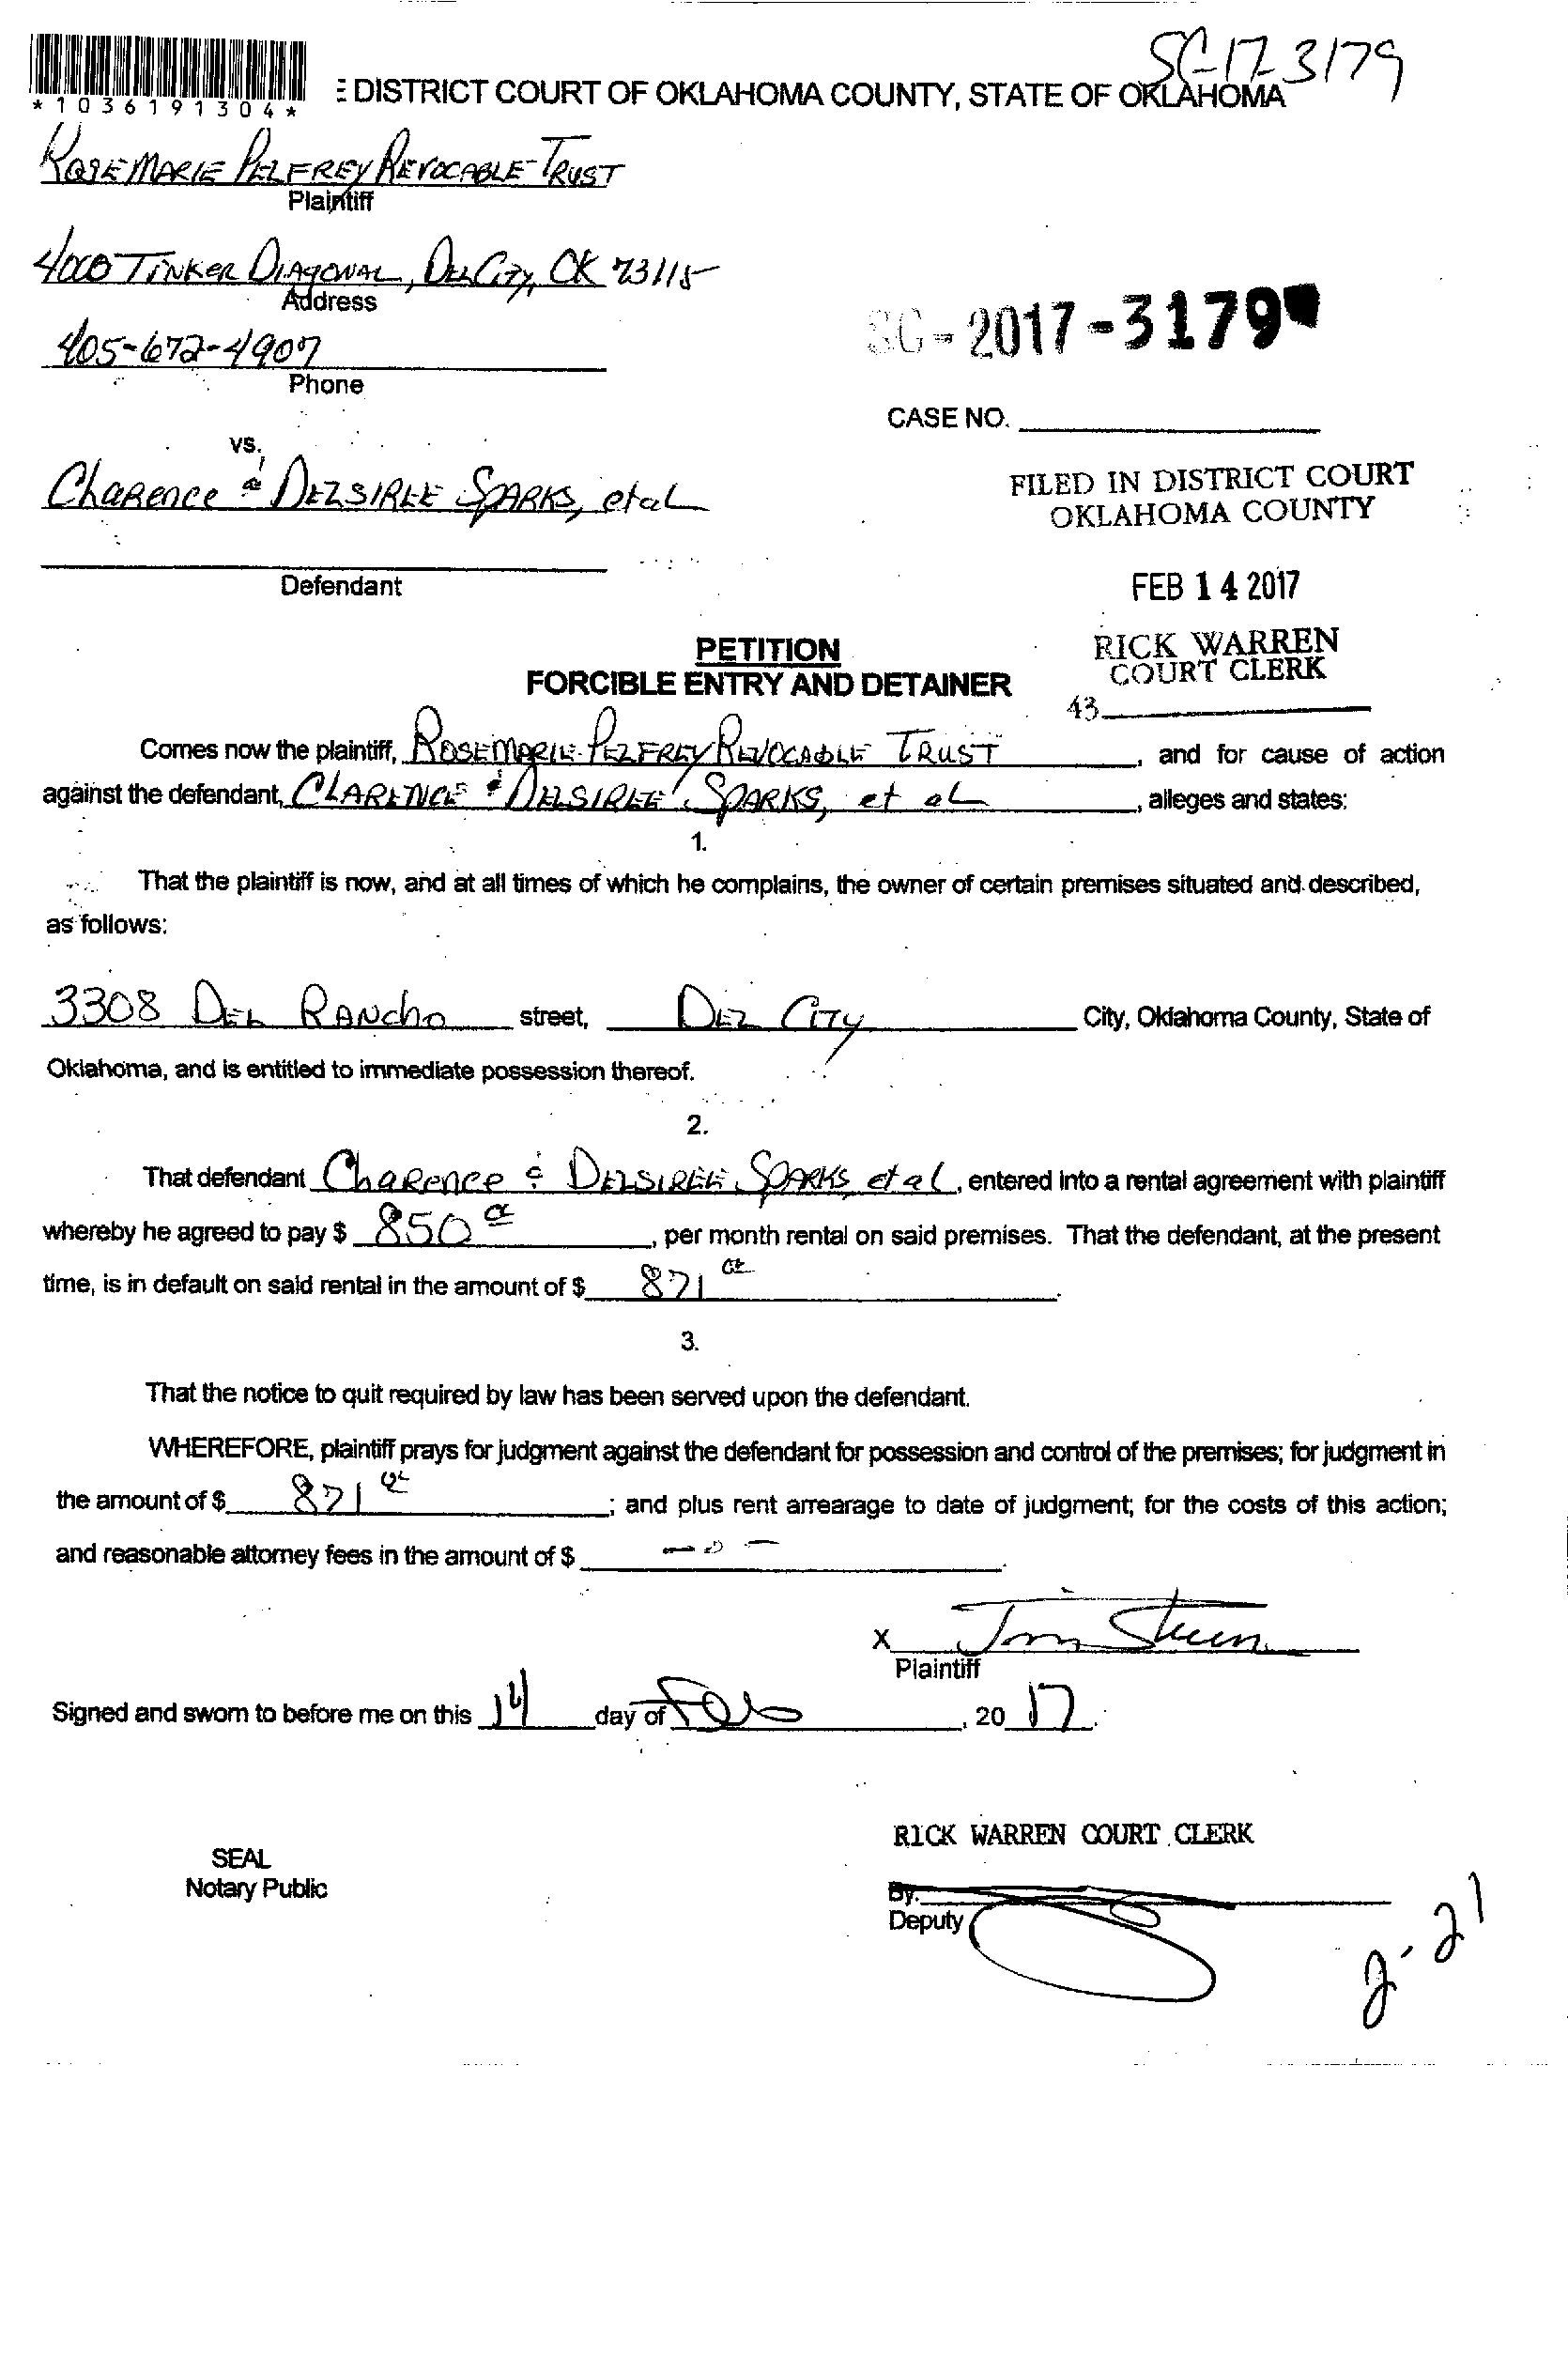 SC-17-3179
*1036191304*
E DISTRICT COURT OF OKLAHOMA COUNTY, STATE OF OKLAHOMA
ROSEMARIE PELFREY REVOCABLE TRUST
Plaintiff
4000 TINKER DIAGONAL, DEL CITY, OK 73115
Address
405-672-4907
Phone
SC-2017-3179
CASE NO.
vs.
Clarence & DELSIREE SPARKS, et al
FILED IN DISTRICT COURT
OKLAHOMA COUNTY
Defendant
FEB 14 2017
PETITION
FORCIBLE ENTRY AND DETAINER
RICK WARREN
COURT CLERK
43
Comes now the plaintiff, ROSEMARIE PELFREY REVOCABLE TRUST, and for cause of action
against the defendant, CLARENCE & DELSIREE SPARKS, et al, alleges and states:
1.
That the plaintiff is now, and at all times of which he complains, the owner of certain premises situated and described,
as follows:
3308 DEL RANcho street, DEL CITY City, Oklahoma County, State of
Oklahoma, and is entitled to immediate possession thereof.
2.
That defendant Clarence & DELSIREE SPARKS et al, entered into a rental agreement with plaintiff
whereby he agreed to pay $ 850 00, per month rental on said premises. That the defendant, at the present
time, is in default on said rental in the amount of $ 871 00.
3.
That the notice to quit required by law has been served upon the defendant.
WHEREFORE, plaintiff prays for judgment against the defendant for possession and control of the premises; for judgment in
the amount of $ 871 00; and plus rent arrearage to date of judgment; for the costs of this action;
and reasonable attorney fees in the amount of $ -0-.
X
Plaintiff
Signed and sworn to before me on this 14 day of Feb, 2017.
RICK WARREN COURT CLERK
SEAL
Notary Public
By.
Deputy
2-21